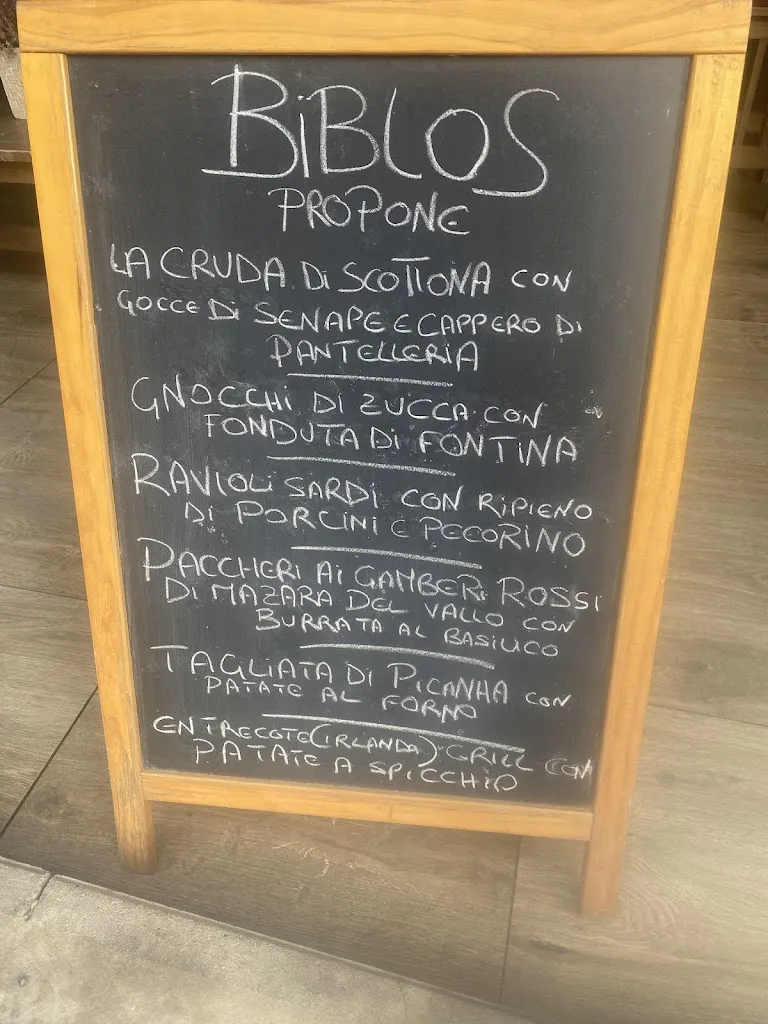 BiBLOS
PROPONE
LA CRUDA Di SCOTTONA CON
GOCCE Di SENAPE E CAPPERO Di
PANTELLERIA
GNOCCHI DI ZUCCA CON
FONDUTA Di FONTINA
RAVIOLI SARDI CON RIPIENO
DI PORCINI E PECORINO
PACCHERI Ai GAMBERi ROSSI
DI MAZARA DEL VALLO CON
BURRATA AL BASILICO
TAGLIATA DI PICANHA CON
PATATE AL FORNO
ENTRECOTE (IRLANDA) GRILL CON
PATATE A SPICCHIO